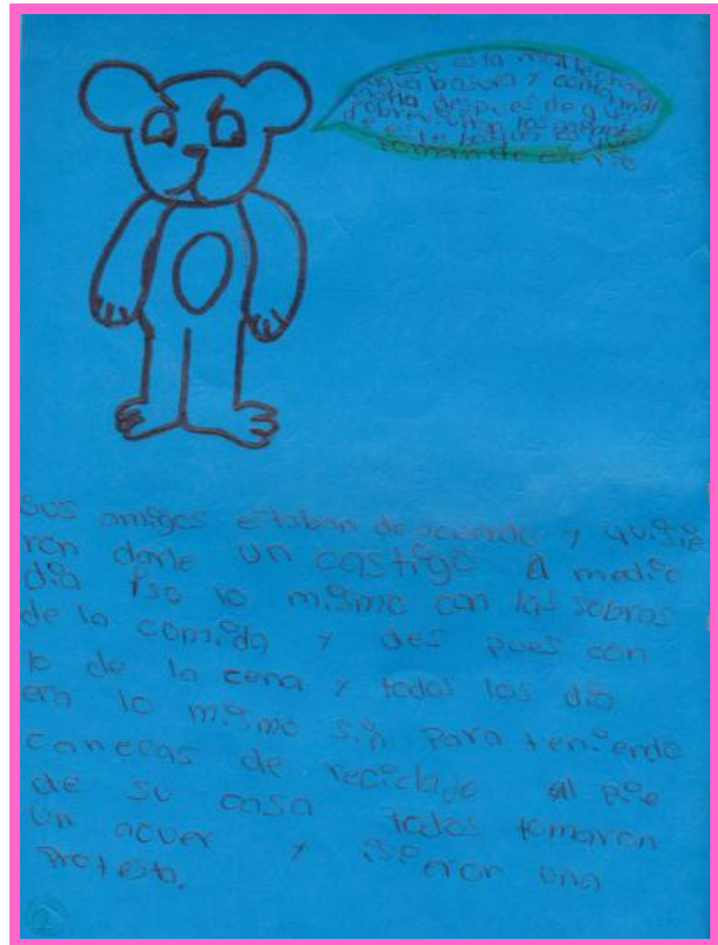 eso esta mal echar
basura y comida
despues de
los
Sus amigos estaban de acuerdo y quisie
ron darle un castigo a medio
dia iso lo mismo con las sobras
de la comida y des pues con
lo de la cena y todos los dia
era lo mismo sin para teniendo
canecas de reciclaje al pie
de su casa todos tomaron
un acuer y isieron una
Protesta.
2